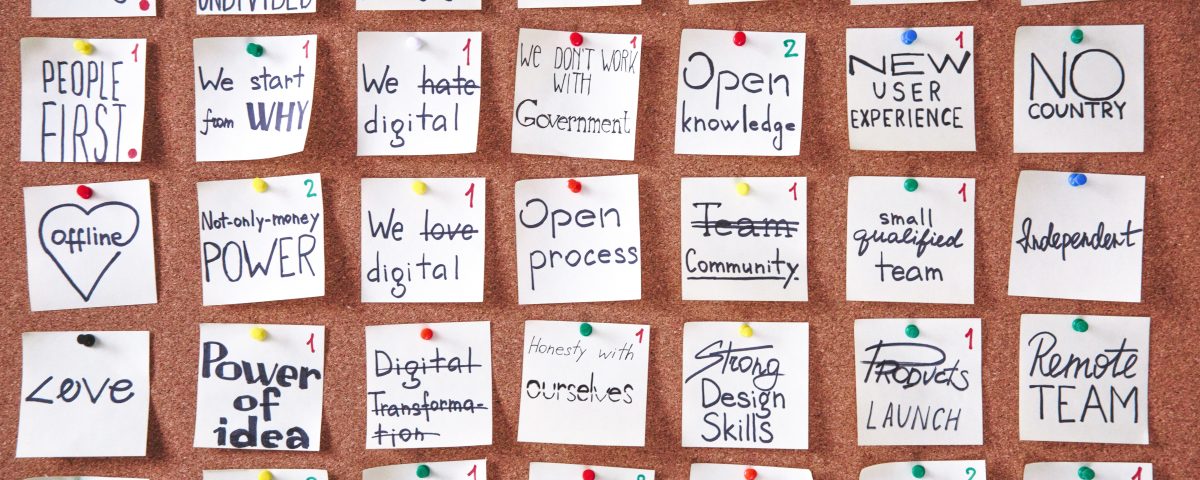 UNDIVIDED
1
PEOPLE
FIRST
1
We start
from WHY
1
We hate
digital
1
We DON'T WORK
WITH
Government
2
Open
knowledge
1
NEW
USER
EXPERIENCE
NO
COUNTRY
offline
2
Not-only-money
POWER
1
We love
digital
Open
process
1
Team
Community.
1
small
qualified
team
Independent
Love
1
Power
of
idea
Digital
Transforma-
tion
1
Honesty with
ourselves
Strong
Design
Skills
1
Products
LAUNCH
Remote
TEAM
2
1
2
2
1